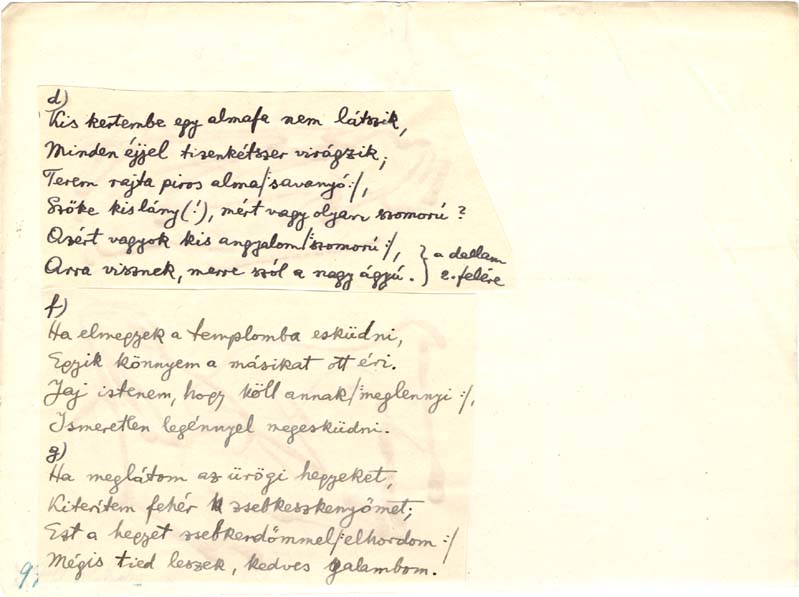 d)
Kis kertembe egy almafa nem látszik,
Minden éjjel tizenkétszer virágzik;
Terem rajta piros alma/:savanyó:/,
Szőke kislány(!), mért vagy olyan szomorú?
Azért vagyok kis angyalom/:szomorú:/, } a dallam
Arra visznek, merre szól a nagy ágyú. } 2. felére
f)
Ha elmegyek a templomba esküdni,
Egyik könnyem a másikat ott éri.
Jaj istenem, hogy köll annak/:meglennyi:/,
Ismeretlen legénnyel megesküdni.
g)
Ha meglátom az ürögi hegyeket,
Kiterítem fehér zsebkeszkenyőmet;
Ezt a hegyet zsebkendőmmel/:elhordom:/
Mégis tied leszek, kedves galambom.